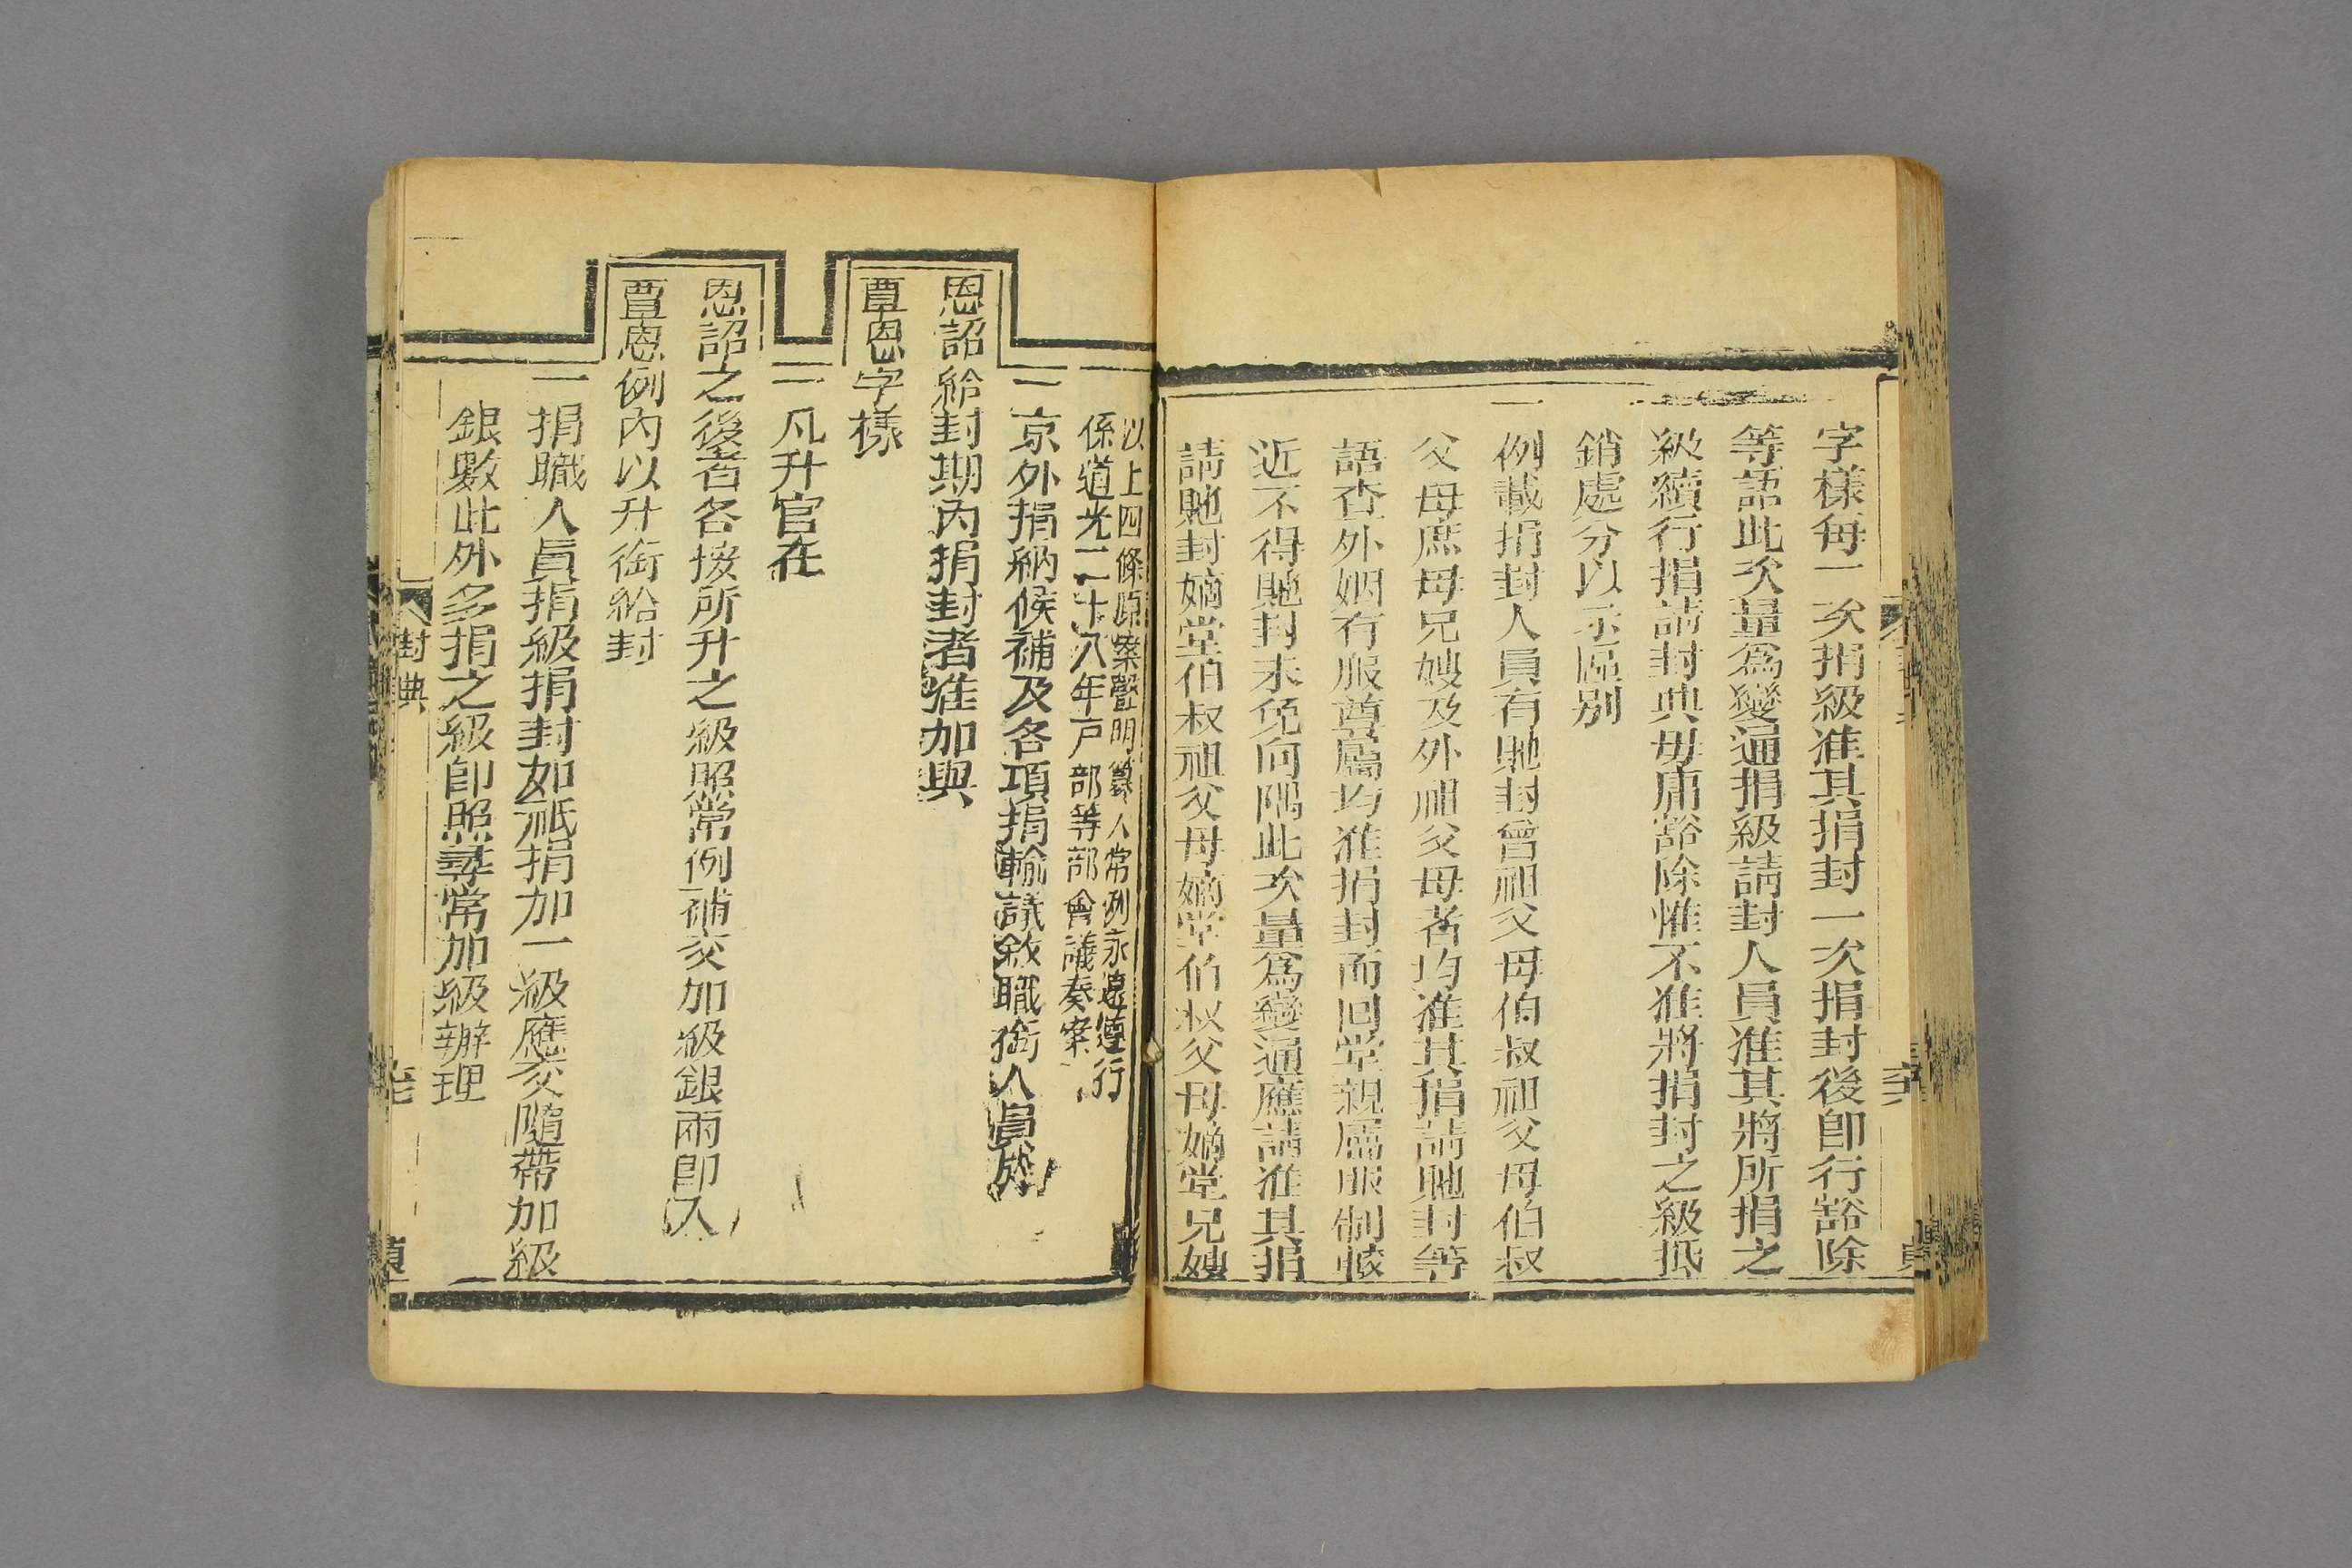 字樣每一次捐級准其捐封一次捐封後卽行豁除
等語此次量爲變通捐級請封人員准其將所捐之
級續行捐請封典毋庸豁除惟不准將捐封之級抵
銷處分以示區别
一例載捐封人員有貤封曾祖父母伯叔祖父母伯叔
父母庶母兄嫂及外祖父母者均准其捐請貤封等
語查外姻有服尊屬均准捐封而同堂親屬服制較
近不得貤封未免向隅此次量爲變通應請准其捐
請貤封嫡堂伯叔祖父母嫡堂伯叔父母嫡堂兄嫂
以上四條原案聲明纂入常例永遠遵行
係道光二十八年户部等部會議奏案
一京外捐納候補及各項捐輸議敘職銜人員於
恩詔給封期內捐封者准加與
覃恩字樣
一凡升官在
恩詔之後者各按所升之級照常例補交加級銀兩卽入
覃恩例內以升銜給封
一捐職人員捐級捐封如祗捐加一級應交隨帶加級
銀數此外多捐之級卽照尋常加級辦理
封典